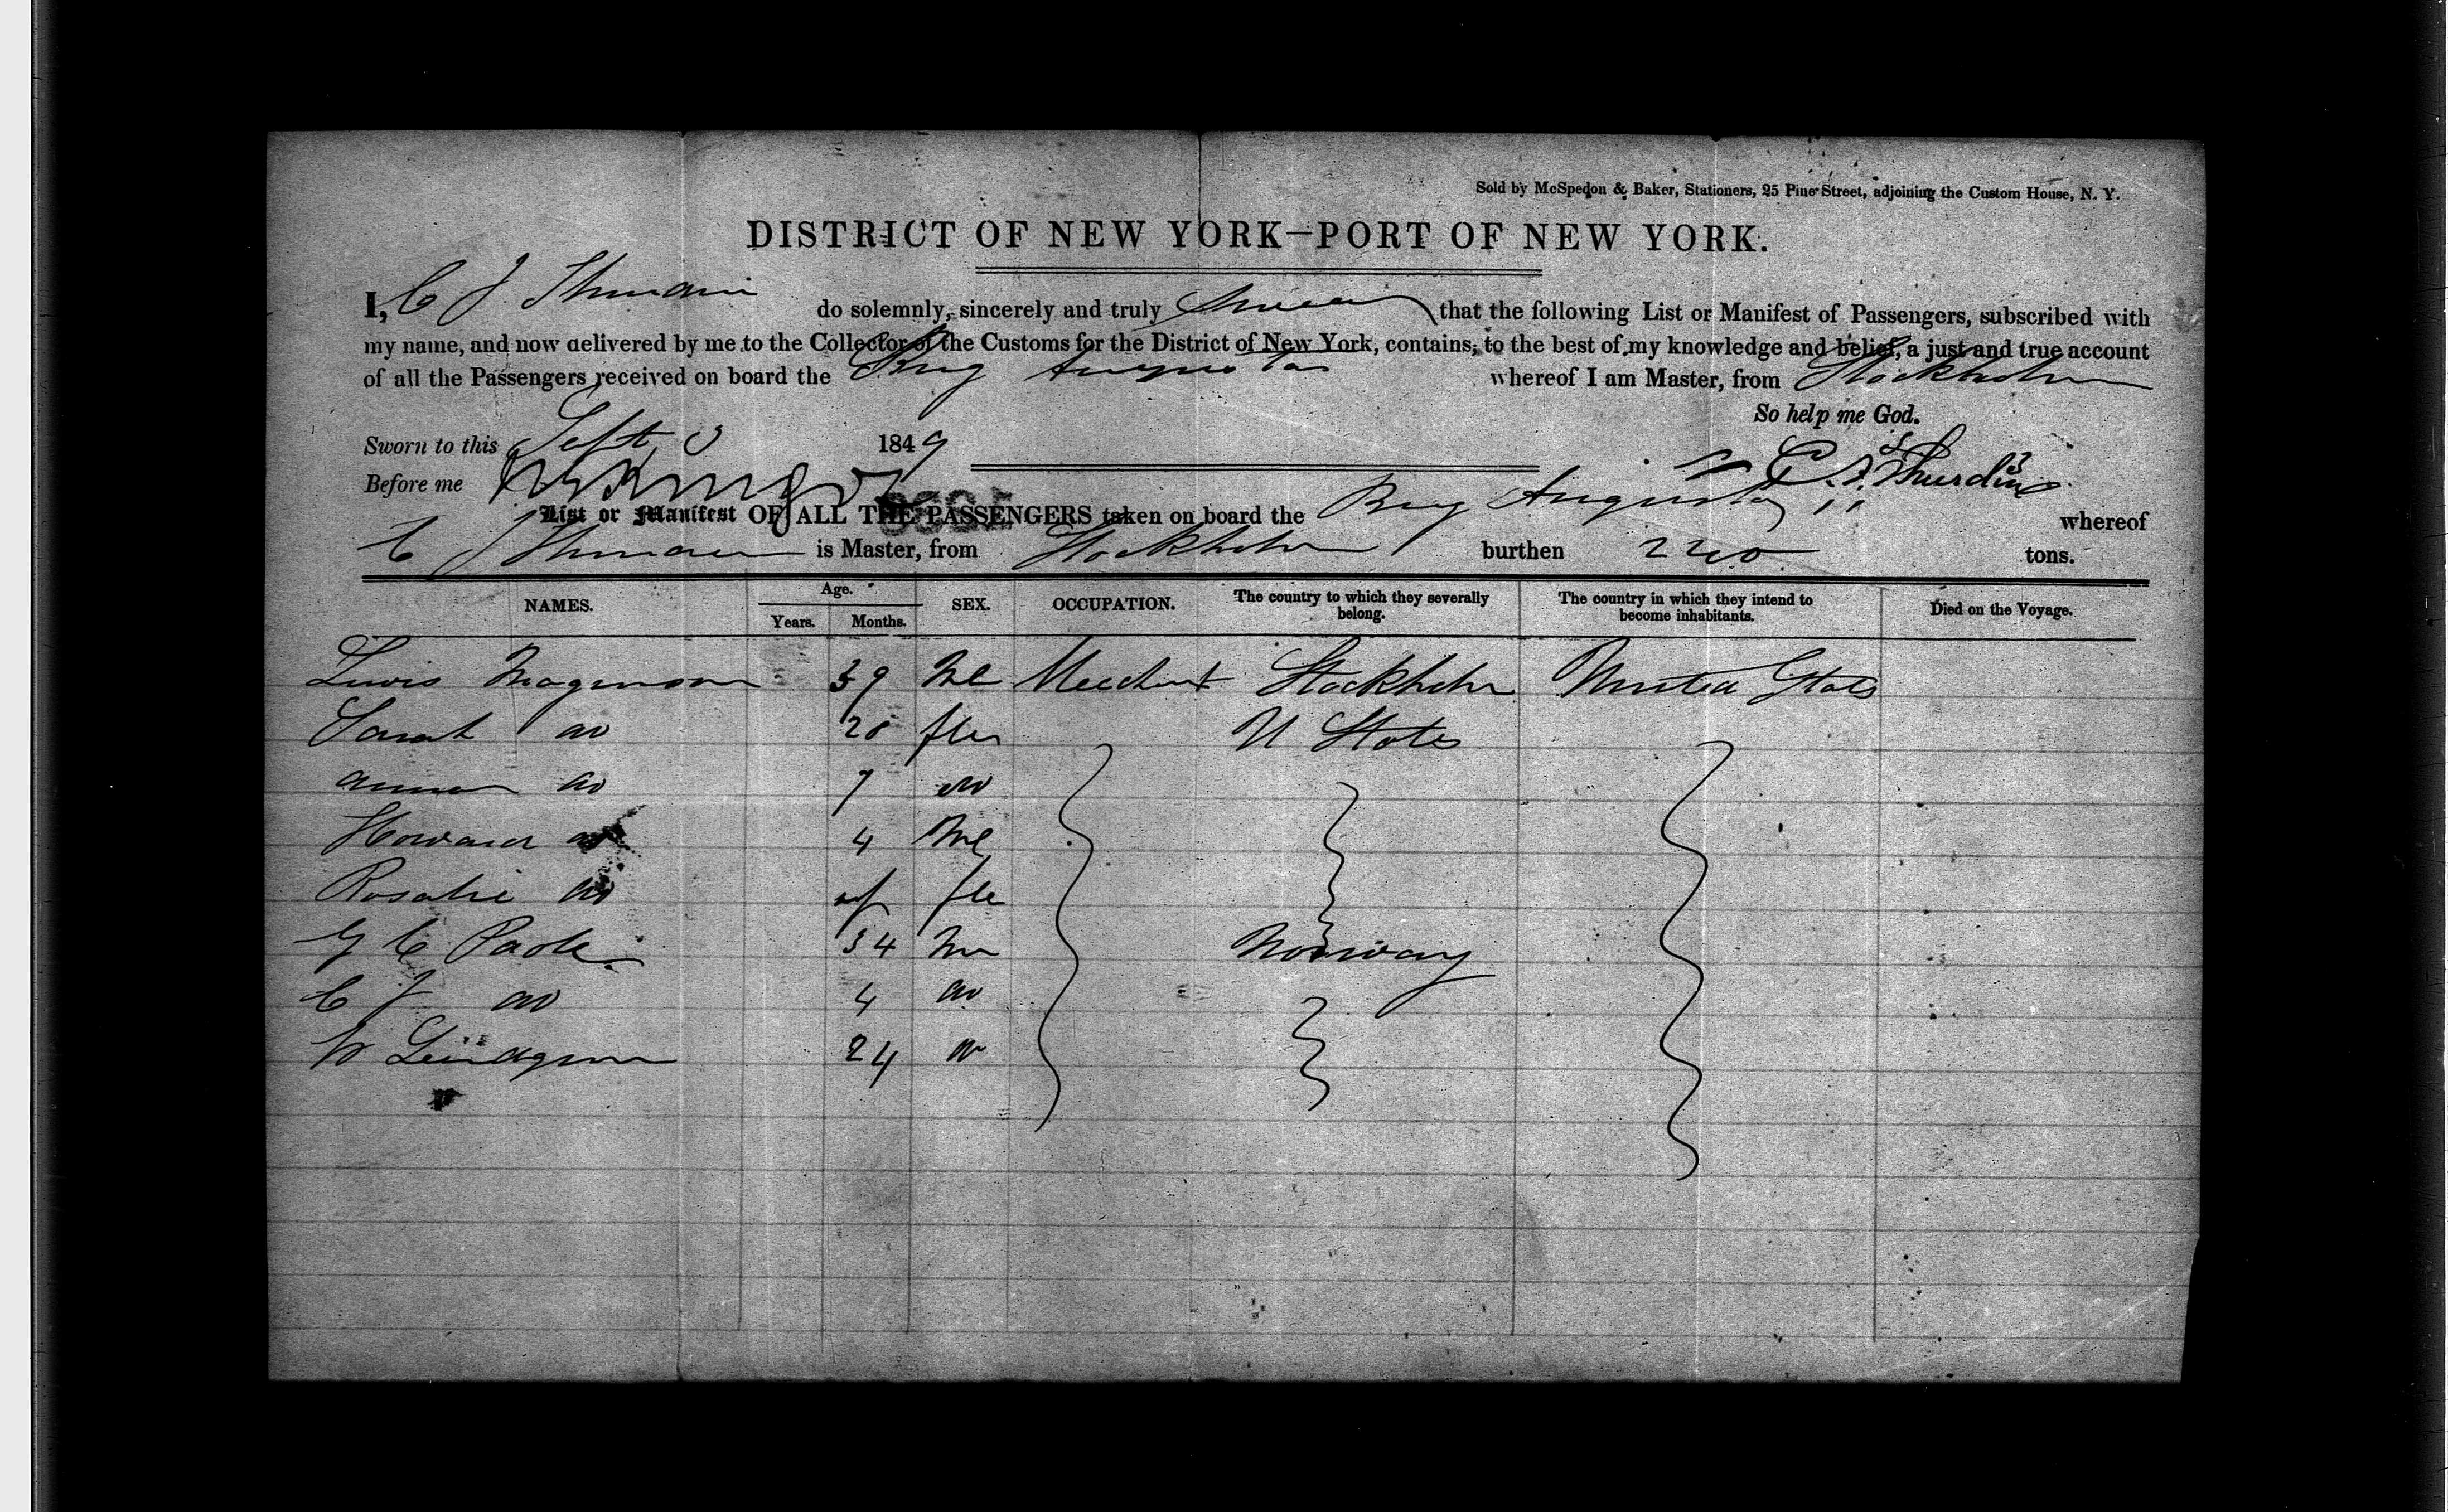 Sold by McSpedon & Baker, Stationers, 25 Pine Street, adjoining the Custom House, N. Y.
DISTRICT OF NEW YORK—PORT OF NEW YORK.
I, C J do solemnly, sincerely and truly Swear that the following List or Manifest of Passengers, subscribed with
my name, and now delivered by me to the Collector of the Customs for the District of New York, contains, to the best of my knowledge and belief, a just and true account
of all the Passengers received on board the Brig Augusta whereof I am Master, from Stockholm
So help me God.
Sworn to this Sept 3 1849
Before me
List or Manifest OF ALL THE PASSENGERS taken on board the Brig Augusta whereof
C J is Master, from Stockholm burthen tons.
NAMES. Age. Years. Months. SEX. OCCUPATION. The country to which they severally belong. The country in which they intend to become inhabitants. Died on the Voyage.
Lewis Magnuson 39 Me Merchant Stockholm United States
Sarah do 28 fle U States
Anna do 7 do
Howard do 4 Me
Rosalie do inf fle
G C 34 M Norway
C J do 4 do
24 do